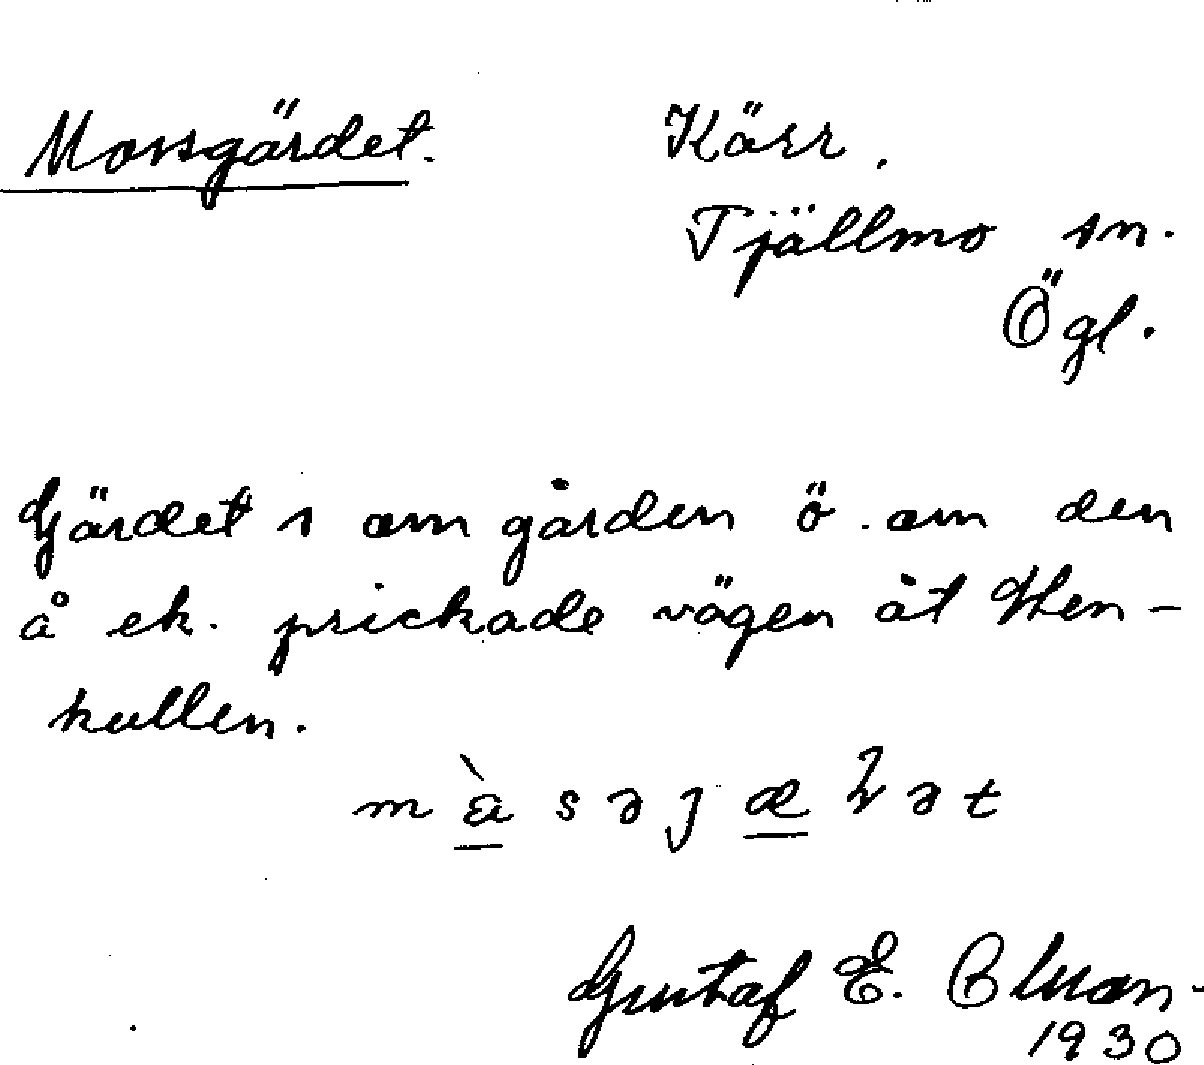 Mossgärdet. Kärr.
Tjällmo sn.
Ögl.
Gärdet s om gården ö. om den
å ek. prickade vägen åt Hen-
kullen.
Gustaf E.
1930